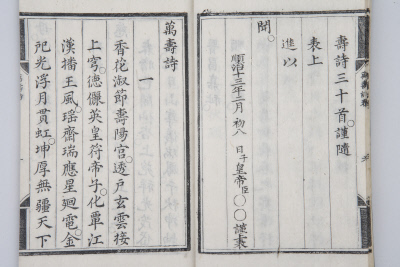 壽詩三十首。謹隨
表上
進以
聞。
順治十三年二月初八日子皇帝臣〇〇謹表
萬壽詩
一
香花淑節壽陽宮。透戶玄雲接
上穹。德儷英皇符帝子。化覃江
漢播王風。瑤齋瑞應星廻電。金
祀光浮月貫虹。坤厚無疆天下